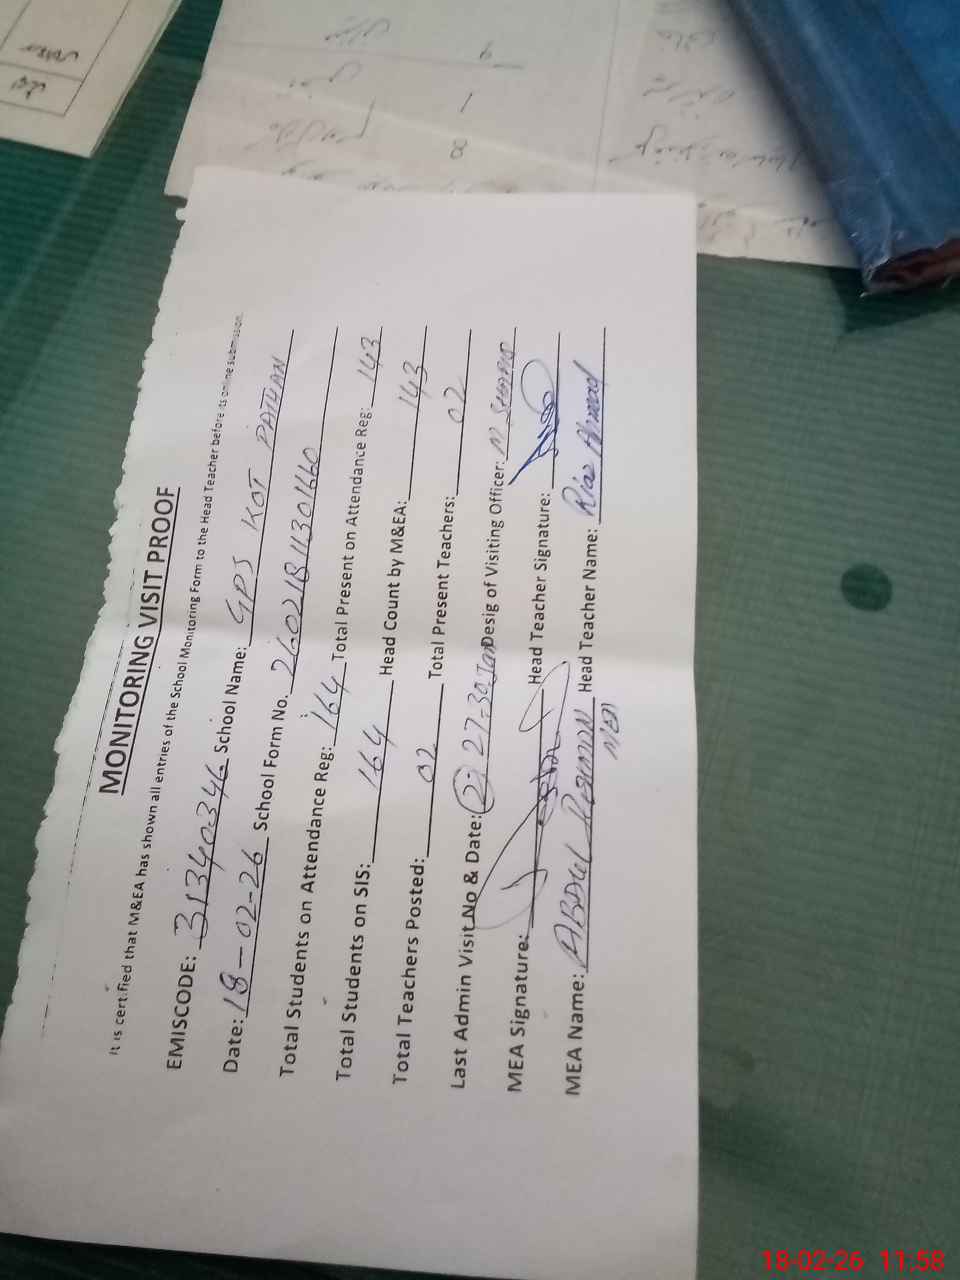 MONITORING VISIT PROOF
It is certified that M&EA has shown all entries of the School Monitoring Form to the Head Teacher before its online submission.
EMISCODE: 31340346 School Name: GPS KOT PATHAN
Date: 18-02-26 School Form No. 26021811301660
Total Students on Attendance Reg: 164 Total Present on Attendance Reg: 143
Total Students on SIS: 164 Head Count by M&EA: 143
Total Teachers Posted: 02 Total Present Teachers: 02
Last Admin Visit No & Date: 2: 27-30 Jan Desig of Visiting Officer: M.
MEA Signature: Head Teacher Signature:
MEA Name: ABDUL REHMAN Head Teacher Name: Riaz Ahmad
MEA
18-02-26 11:58